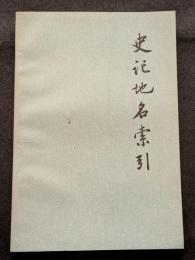 史记地名索引